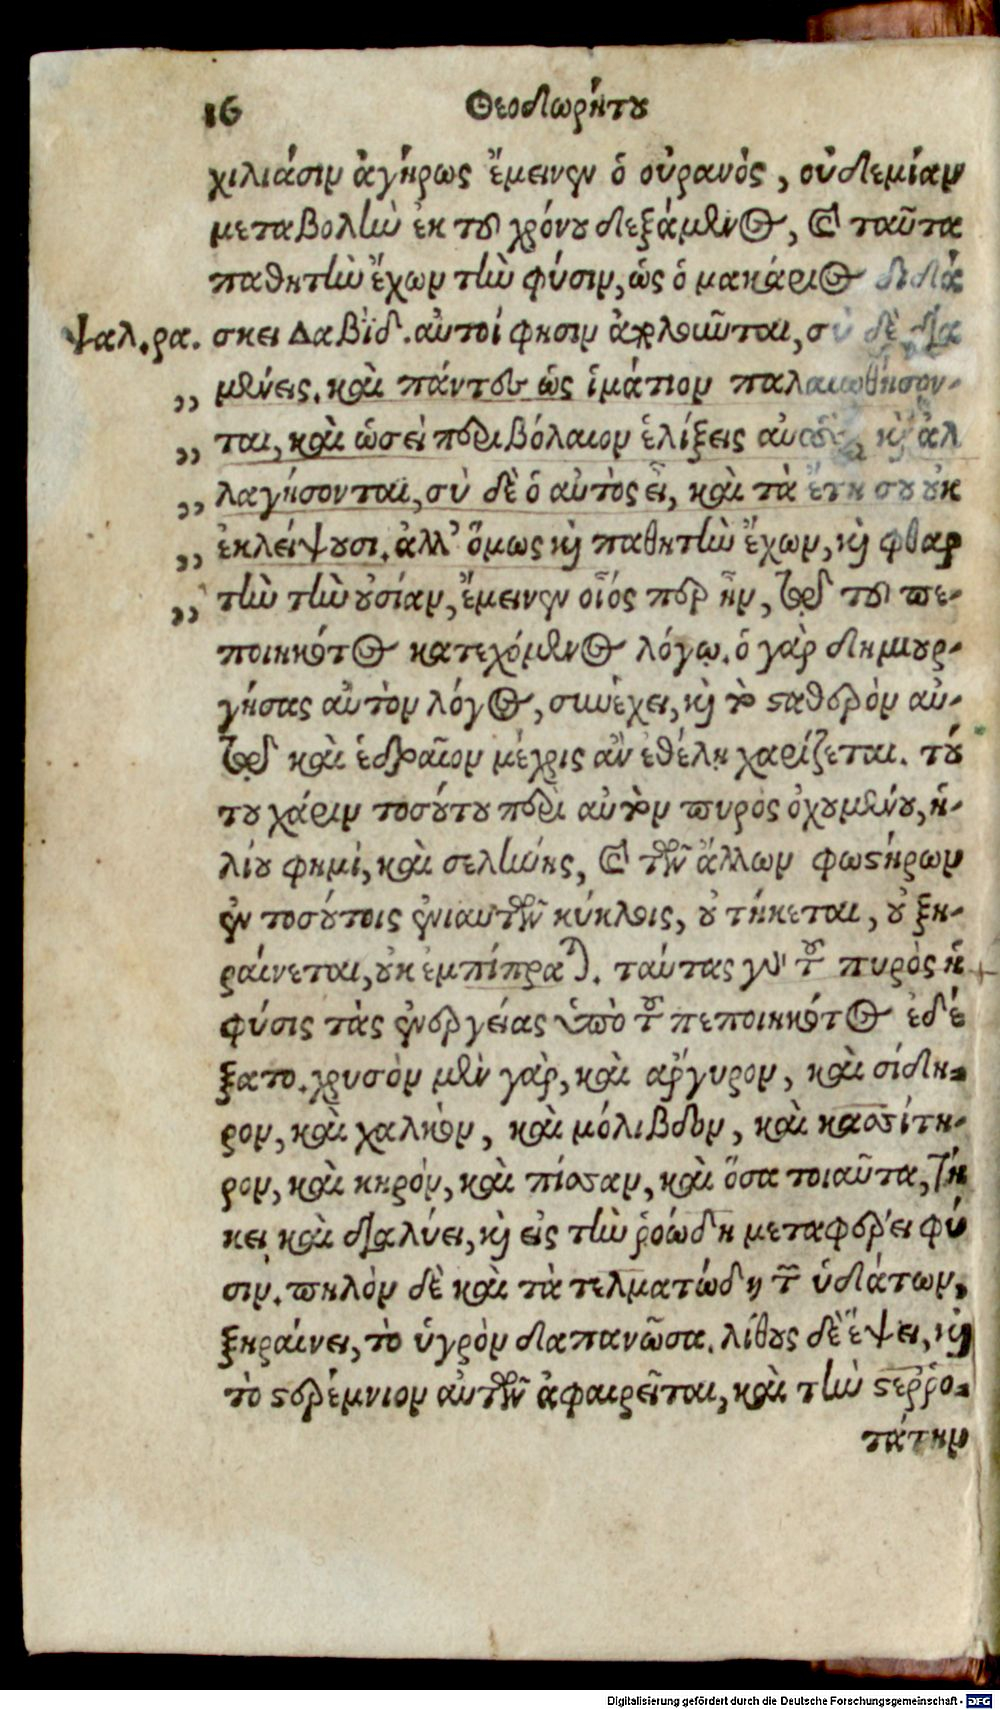 16 Θεοδωρήτου
χιλιάσιν ἀγήρως ἔμεινεν ὁ οὐρανὸς, οὐδεμίαν
μεταβολὴν ἐκ τοῦ χρόνου δεξάμενος, καὶ ταῦτα
παθητὴν ἔχων τὴν φύσιν, ὡς ὁ μακάριος διδά
ψαλ. ρα. σκει Δαβὶδ. αὐτοί φησιν ἀπολοῦνται, σὺ δὲ δια
„ μένεις. καὶ πάντες ὡς ἱμάτιον παλαιωθήσον-
„ ται, καὶ ὡσεὶ περιβόλαιον ἑλίξεις αὐτοὺς, καὶ ἀλ
„ λαγήσονται, σὺ δὲ ὁ αὐτὸς εἶ, καὶ τὰ ἔτη σου οὐκ
„ ἐκλείψουσι. ἀλλ' ὅμως καὶ παθητὴν ἔχων, καὶ φθαρ
„ τὴν τὴν οὐσίαν, ἔμεινεν οἷός περ ἦν, ὑπὸ τοῦ πε-
ποιηκότος κατεχόμενος λόγῳ. ὁ γὰρ δημιουρ-
γήσας αὐτὸν λόγος, συνέχει, καὶ τὸ σταθερὸν αὐ-
τῷ καὶ ἑδραῖον μέχρις ἂν ἐθέλῃ χαρίζεται. τού
του χάριν τοσούτου περὶ αὐτὸν πυρὸς ὀχουμένου, ἡ-
λίου φημί, καὶ σελήνης, καὶ τῶν ἄλλων φωστήρων
ἐν τοσούτοις ἐνιαυτῶν κύκλοις, οὐ τήκεται, οὐ ξη-
ραίνεται, οὐκ ἐμπίπραται. ταύτας γὰρ τοῦ πυρὸς ἡ
φύσις τὰς ἐνεργείας ὑπὸ τοῦ πεποιηκότος ἐδέ
ξατο. χρυσὸν μὲν γὰρ, καὶ ἄργυρον, καὶ σίδη-
ρον, καὶ χαλκὸν, καὶ μόλιβδον, καὶ κασσίτη-
ρον, καὶ κηρὸν, καὶ πίσσαν, καὶ ὅσα τοιαῦτα, τή
κει καὶ διαλύει, καὶ εἰς τὴν ῥοώδη μεταφέρει φύ
σιν. πηλὸν δὲ καὶ τὰ τελματώδη τῶν ὑδάτων,
ξηραίνει, τὸ ὑγρὸν δαπανῶσα. λίθους δὲ ἕψει, καὶ
τὸ στερέμνιον αὐτῶν ἀφαιρεῖται, καὶ τὴν στερρο-
τάτην
Digitalisierung gefördert durch die Deutsche Forschungsgemeinschaft - DFG